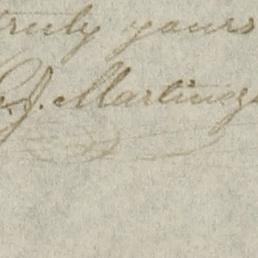 truly yours
J. Martinez